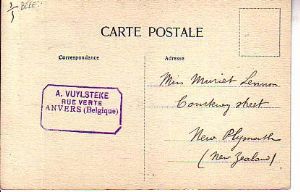 2/5 BELG.
CARTE POSTALE
Correspondance
Adresse
A. VUYLSTEKE
RUE VERTE
ANVERS (Belgique)
Miss Muriel Lennon
Courtenay street
New Plymouth
(New Zealand)